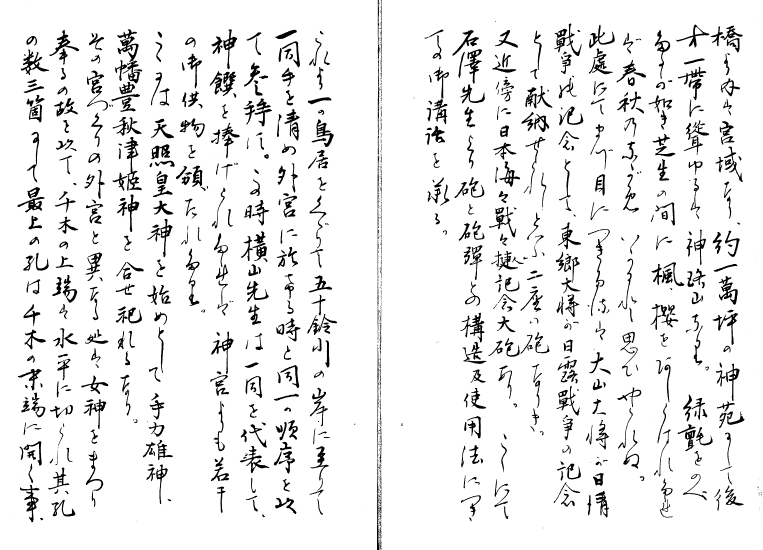 橋より内は宮域なり、約一萬坪の神苑にして後
方一帯に聳ゆるは神路山なり。緑氈をのべ
たるが如き芝生の間に楓櫻をあしらはれたれ
ば春秋のながめいかにと思ひやられぬ。
此處にて先づ目につきたるは大山大将が日清
戰爭の記念として、東郷大将が日露戰爭の記念
として献納せられしといふ二座の砲なりき。
又近傍に日本海々戰々捷記念大砲あり。こゝにて
石澤先生より砲と砲彈との構造及使用法につき
ての御講話を承る。
これより一の鳥居をくゞりて五十鈴川の岸に至りて
一同手を清め外宮に於ける時と同一の順序を以
て参拝す。この時横山先生は一同を代表して、
神饌を捧げられたれば神宮よりも若干
の御供物を頒たれたり。
こゝには天照皇大神を始めとして手力雄神、
萬幡豊秋津姫神を合せ祀れるなり。
その宮づくりの外宮と異なる処は女神をまつり
奉るの故を以て、千木の上端は水平に切られ其孔
の数三箇にして最上の孔は千木の末端に開く事、